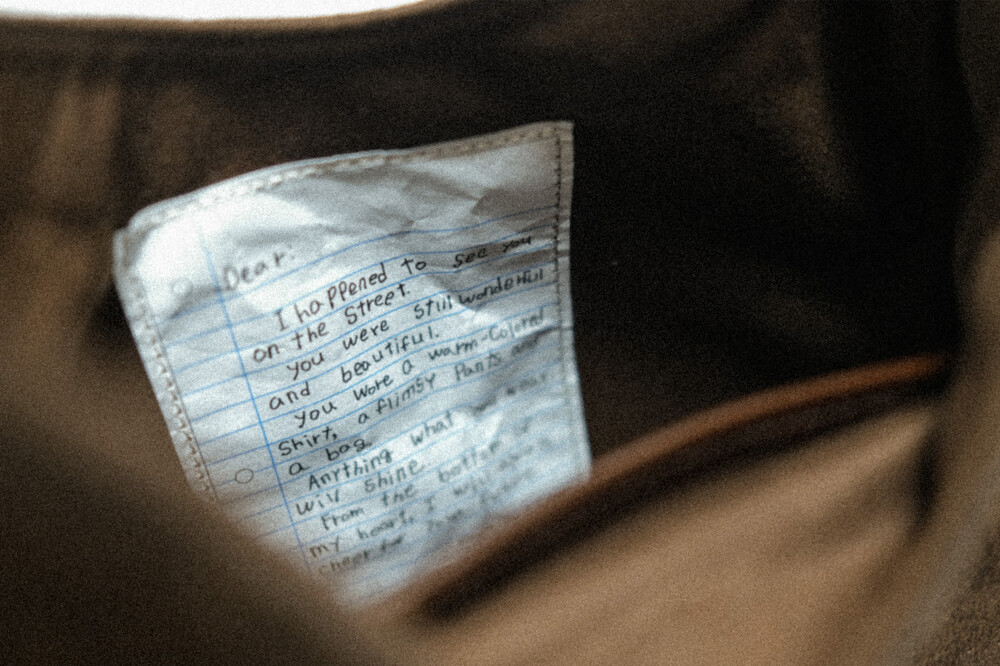 Dear.
I happened to see you
on the Street.
you were still wonderful
and beautiful.
you wore a warm-Colored
Shirt, a flimsy Pants and
a bag.
Anything what
will shine
from the bottom
my heart, I will
cheer for